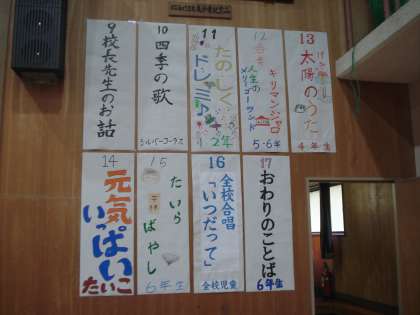 9
校長先生のお話
10
四季の歌
シルバーコーラス
11
たのしく
ドレミ♪
2年
12
人生の
メリーゴーランド
キリマンジャロ
5・6年
13
太陽のうた
4年生
14
元気
いっぱい
たいこ
15
たいら
ばやし
6年生
16
全校合唱
「いつだって」
全校児童
17
おわりのことば
6年生